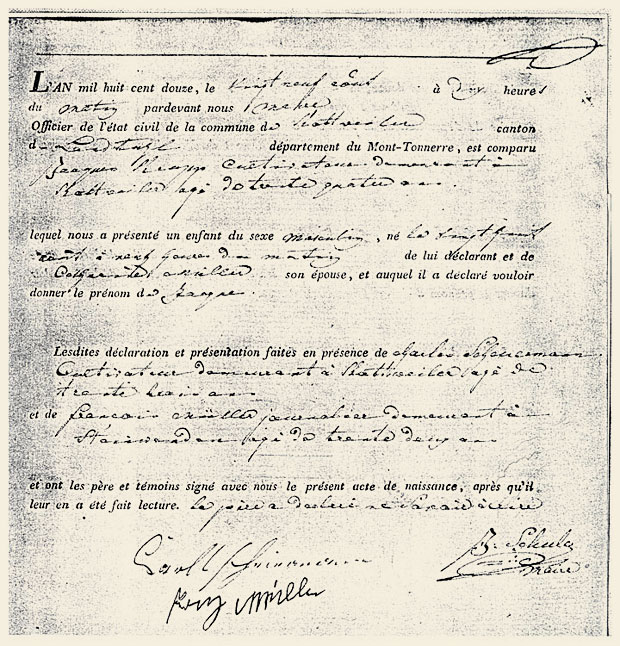 L'AN mil huit cent douze, le vingt neuf août à dix heures
du matin pardevant nous maire
Officier de l'état civil de la commune de Kottweiler canton
de Landstuhl département du Mont-Tonnerre, est comparu
Jacques cultivateur demeurant à
Kottweiler agé de trente quatre ans
lequel nous a présenté un enfant du sexe masculin, né le vingt huit
août à neuf heures du matin de lui déclarant et de
Müller son épouse, et auquel il a déclaré vouloir
donner le prénom de Jacques
Lesdites déclaration et présentation faites en présence de charles Scheuermann
Cultivateur demeurant à Kottweiler agé de
trente ans
et de françois Müller journalier demeurant à
Steinwenden agé de trente deux ans
et ont les père et témoins signé avec nous le présent acte de naissance, après qu'il
leur en a été fait lecture. le père a declaré ne savoir écrire
Carl Scheuermann
Müller
Schulz
maire